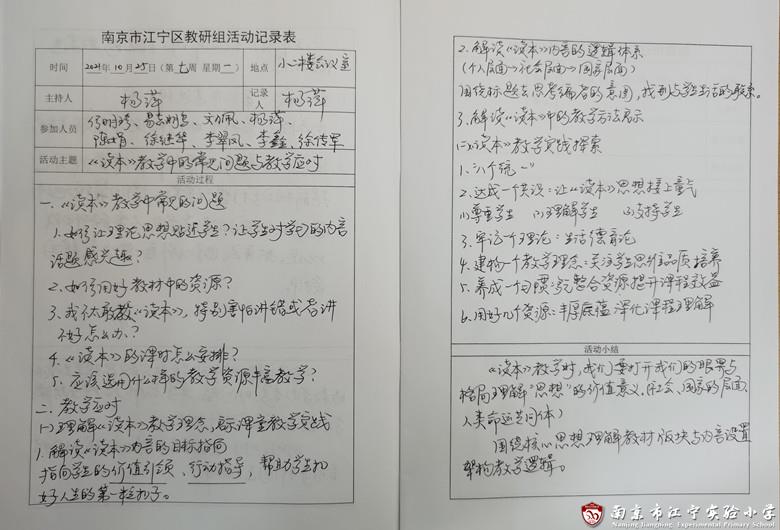 南京市江宁区教研组活动记录表
时间 2021年10月25日(第七周 星期一) 地点 小二楼会议室
主持人 杨萍 记录人 杨萍
参加人员
陈娟、徐继华、李翠凤、李鑫、徐传军
活动主题 《读本》教学中的常见问题与教学应对
活动过程
一、《读本》教学中常见的问题
1.如何让理论思想贴近学生?让学生对学习的内容
话题感兴趣?
2.如何用好教材中的资源?
3.我不太敢教《读本》,特别害怕讲错或者讲
不好怎么办?
4.《读本》的课时怎么安排?
5.应该运用什么样的教学资源丰富教学?
二、教学应对
(一)理解《读本》教学理念,展示课堂教学实践
1.解读《读本》内容的目标指向
指向学生的价值引领、行动指导,帮助学生扣
好人生的第一粒扣子。
2.解读《读本》内容的逻辑体系
(个人层面→社会层面→国家层面)
围绕标题去思考编者的意图,找到与学生生活的联系。
3.解读《读本》中的教学方法展示
(二)《读本》教学实践探索
1.“八个统一”
2.达成一个共识:让《读本》思想接上童气
(1)尊重学生 (2)理解学生 (3)支持学生
3.牢记一个理论:生活德育论
4.建构一个教学理念:关注学生思维品质培养
5.养成一个习惯:完整合资源提升课程效益
6.用好几个资源:丰厚底蕴 深化课程理解
活动小结
《读本》教学时,我们要打开我们的眼界与
格局理解“思想”的价值意义。(社会、国家的层面、
人类命运共同体)
围绕核心思想理解教材版块与内容设置
架构教学逻辑。
南京市江宁实验小学
Nanjing Jiangning Experimental Primary School